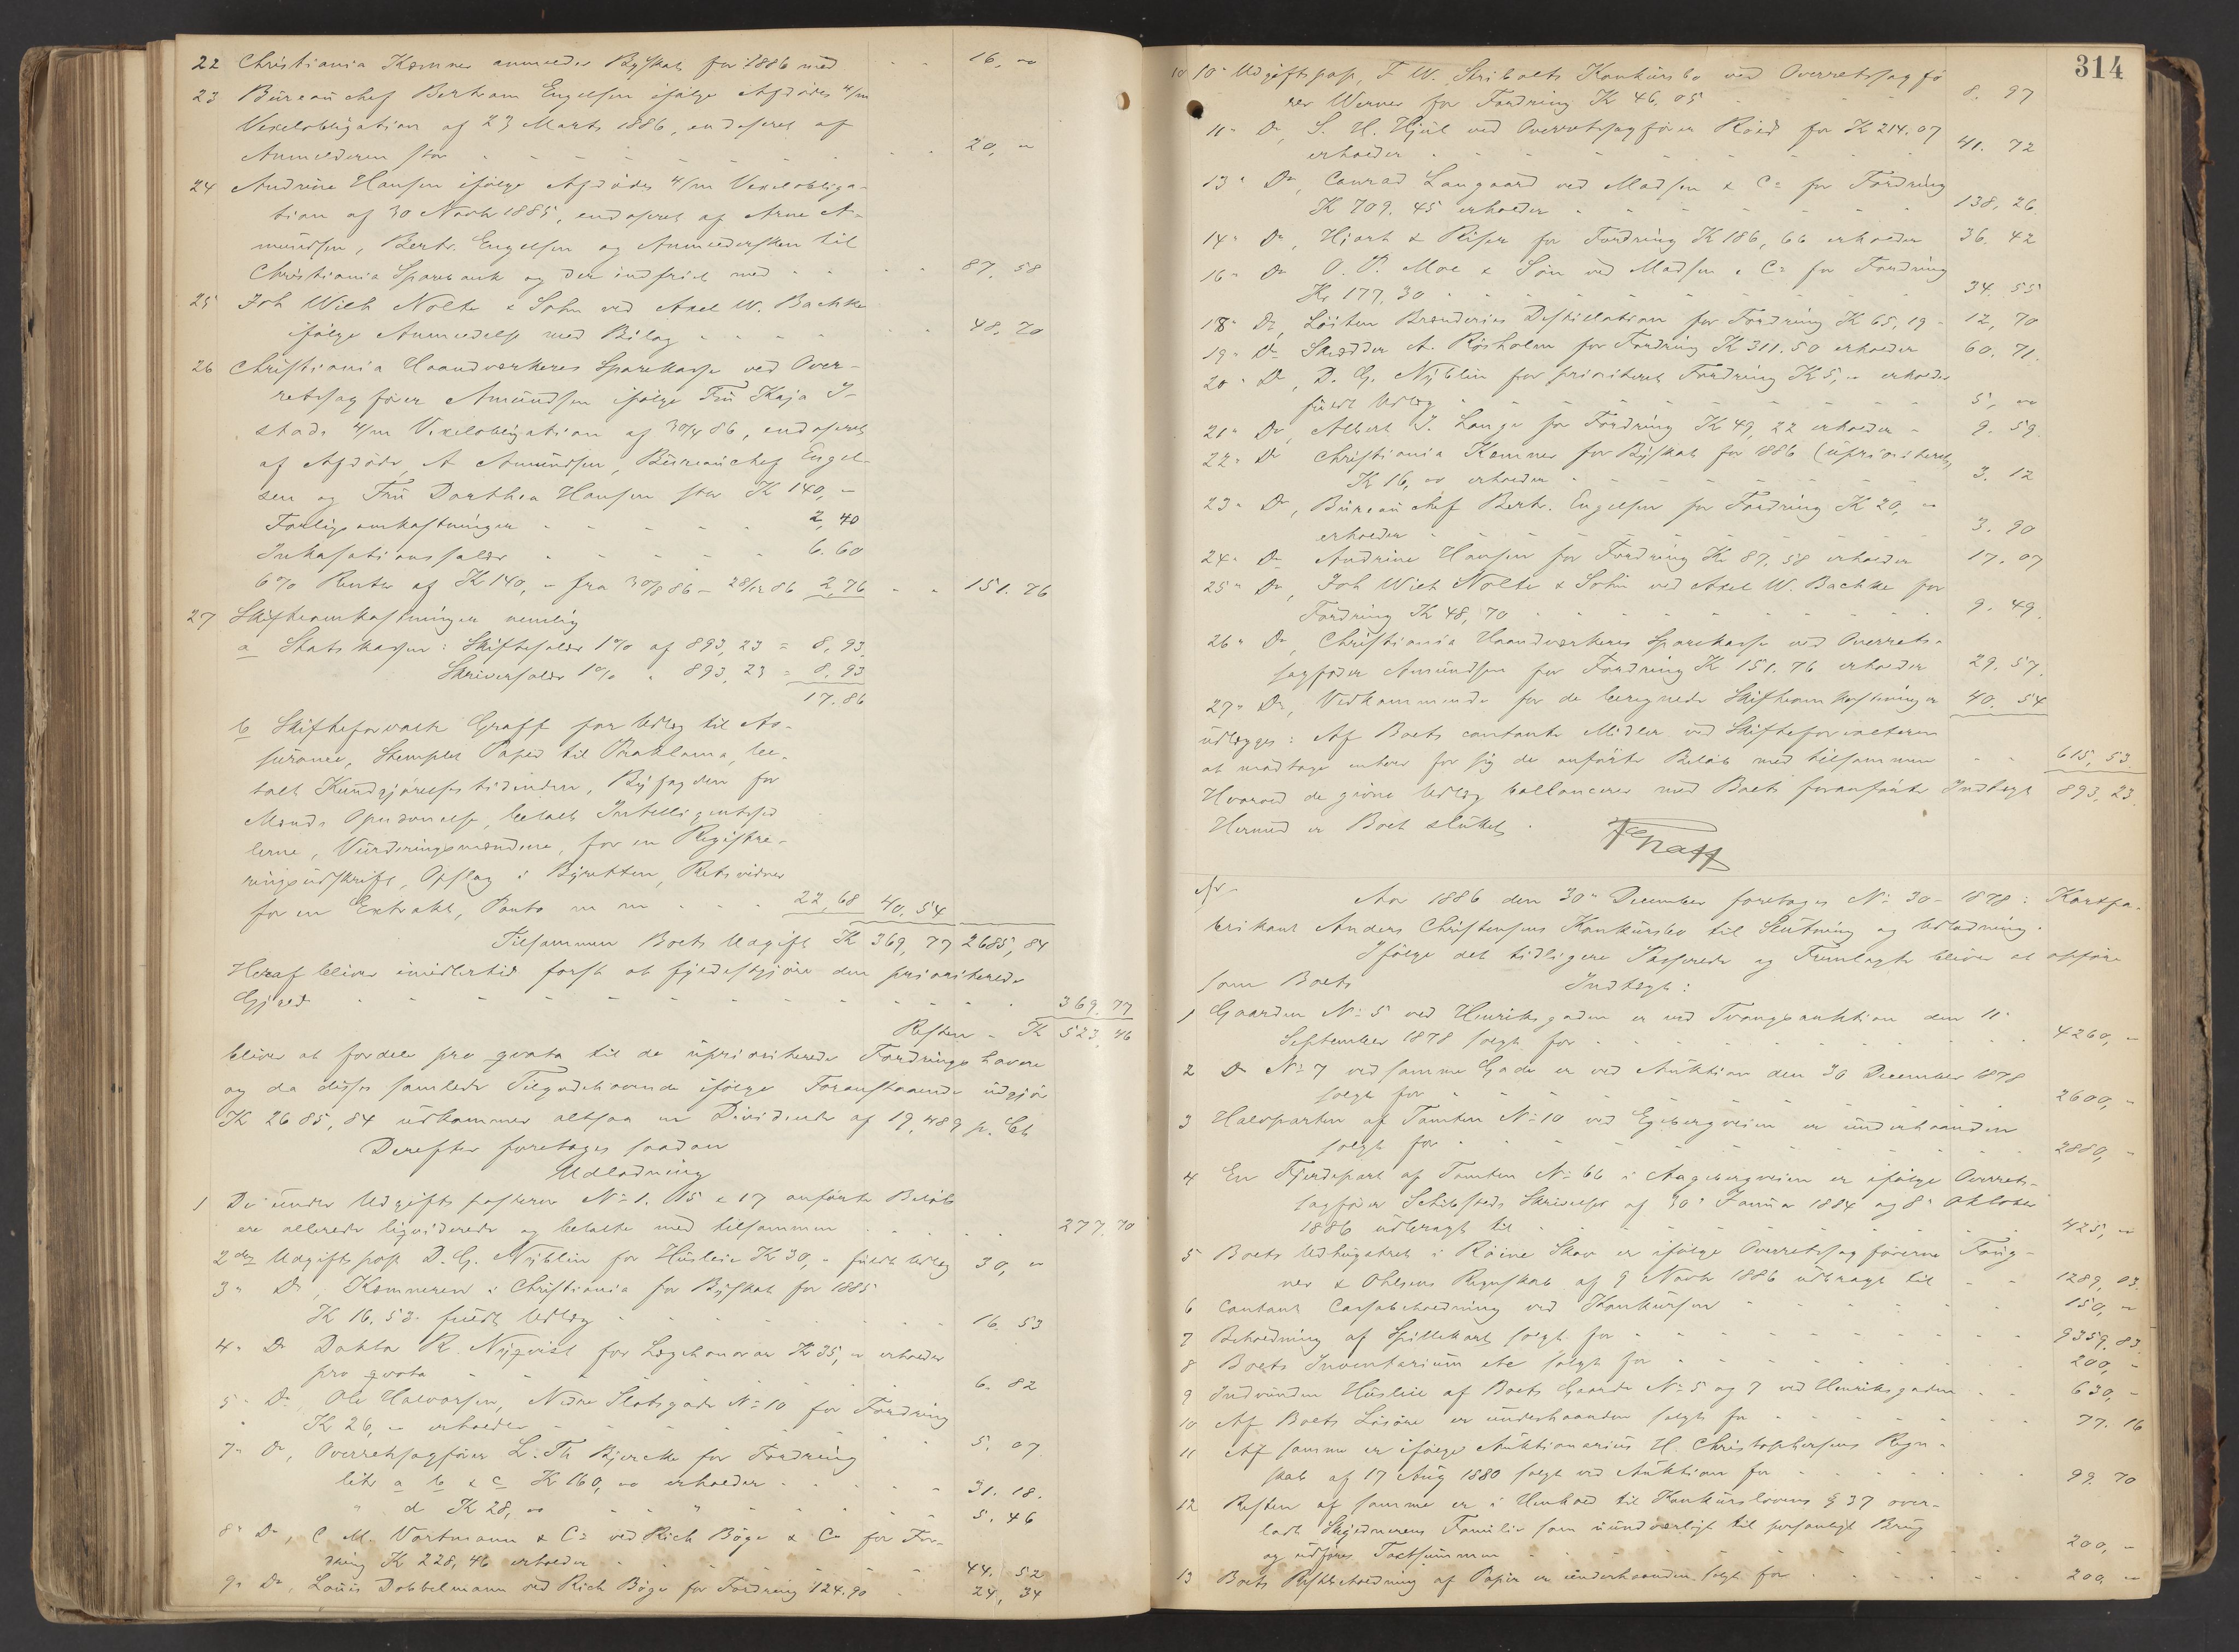 22 Christiania Kæmner anmelder Byskat for 1886 med - - 16, "
23 Bureauchef Bertram Engelsen ifølge Afdødes 4/m
Vexelobligation af 23 Marts 1886, endosseret af
Anmelderen stor - - - 20, "
24 Andrine Hansen ifølge Afdødes 4/m Vexelobliga-
tion af 30 Novbr 1885, endosseret af Arne A-
mundsen, Bertr. Engelsen og Anmeldersken til
Christiania Sparebank og der indfriet med - - - 87. 58
25 Joh Wilh Nolte & Sohn ved Axel W. Bachke
ifølge Anmeldelse med Bilag - - - 48. 70
26 Christiania Haandværkeres Sparekasse ved Over-
retssagfører Amundsen ifølge Fru Kaja I-
stads 4/m Vexelobligation af 30/4 86, endosseret
af Afdøde, A Amundsen, Bureauchef Engel-
sen og Fru Dorthea Hansen stor K 140, -
Forligsomkostninger - - - 2, 40
Inkassationssalær - - - 6. 60
6% Renter af K 140, - fra 30/8 86 - 28/12 86 2,76 - - 151. 76
27 Skifteomkostninger nemlig
a Statskassen: Skiftesalær 1% af 893, 23 = 8, 93.
Skriversalær 1% " 893, 23 = 8. 93
17. 86
b Skifteforvalter Graff for Udlæg til As-
surance, Stemplet Papir til Proklama, be-
talt Kundgjørelsestidenden, Byfogden for
Mænds Opnævnelse, betalt Intelligentssed
lerne, Vurderingsmændene, for en Registre-
ringsudskrift, Opslag i Byretten, Retsvidner
for en Extrakt, Porto m m - - - 22, 68 40, 54
Tilsammen Boets Udgift K 369, 77 2685, 84
Heraf bliver imidlertid først at fyldestgjøre den prioriterede
Gjæld - - - 369. 77
Resten - K 523, 46
bliver at fordele pro qvota til de uprioriterede Fordringshavere
og da disses samlede Tilgodehavende ifølge Foranstaaende udgjør
K 2685, 84 udkommer altsaa en Dividende af 19,489 p. Ct.
Derefter foretages saadan
Udlodning
1 De under Udgifts posterne No 1. 15 & 17 anførte Beløb
ere allerede liqviderede og betalte med tilsammen - - - 277. 70
2den Udgifts post D. G. Nyblin for Husleie K 30, - fuldt Udlæg 30, "
3" Do, Kæmneren i Christiania for Byskat for 1885
K 16, 53. fuldt Udlæg - - - 16. 53
4" Do Doktor R. Nyqvist for Lægehonorar K 35, " erholder
pro qvota - - - 6. 82
5" Do Ole Halvorsen, Nedre Slotsgade No 10 for Fordring
K 26, - erholder - - - 5. 07
7" Do, Overretssagfører L. Th Bjercke for Fordring
litr a b & c K 160, " erholder - - - 31. 18.
" d K 28, " - - " - - - 5. 46
8" Do, C M. Vortmann & Co ved Rich Bøge & Co for For-
dring K 228, 46 erholder - - - 44. 52
9" Do, Louis Dobbelmann ved Rich Bøge for Fordring 124. 90 24, 34
314
10 10" Udgiftspost, F. W. Seribolts Konkursbo ved Overretssagfø
rer Werner for Fordring K 46. 05 - - - 8. 97
11" Do, S. H. Hjul ved Overretssagfører Roed for K 214. 07
erholder - - - 41. 72
13" Do, Conrad Langaard ved Madsen & Co for Fordring
K 709. 45 erholder - - - 138, 26.
14" Do, Hjorth & Riser for Fordring K 186, 66 erholder 36. 42
16" Do O. P. Moe & Søn ved Madsen & Co for Fordring
Kr 177, 30 - - - 34. 55
18" Do, Løiten Brænderies Destillation for Fordring K 65, 19 - 12, 70
19" Do Skrædder A. Røsholm for Fordring K 311. 50 erholder 60. 71.
20" Do, D. G. Nyblin for prioriteret Fordring K 5, " erholder
fuldt Udlæg - - - 5, "
21" Do, Albert J. Lange for Fordring K 49, 22 erholder - 9. 59
22" Do Christiania Kæmner for Byskat for 1886 (uprioriteret)
K 16, " erholder - - - 3. 12
23" Do, Bureauchef Bertr. Engelsen for Fordring K 20, "
erholder - - - 3. 90
24" Do Andrine Hansen for Fordring Kr 87, 58 erholder 17. 07
25" Do, Joh Wilh Nolte & Sohn ved Axel W. Bachke for
Fordring K 48, 70 - - - 9. 49.
26" Do, Christiania Haandværkeres Sparekasse ved Overrets-
sagfører Amundsen for Fordring K 151. 76 erholder 29. 57.
27" Do, Vedkommende for de beregnede Skifteomkostninger 40. 54
udlægges: Af Boets contante Midler ved Skifteforvalteren
at modtage enhver for sig de anførte Beløb med tilsammen - - 615, 53.
Hvorved de givne Udlæg ballancerer med Boets foranførte Indtægt 893, 23.
Hermed er Boet sluttet.
Graff
Aar 1886 den 30" December foretoges No 30 - 1878: Kortfa-
brikant Anders Christensens Konkursbo til Slutning og Udlodning.
Ifølge det tidligere Passerede og Fremlagte bliver at opføre
som Boets Indtægt:
1 Gaarden No 5 ved Henriksgaden er ved Tvangsauktion den 11"
September 1878 solgt for - - - 4260, -
2 Do No 7 ved samme Gade er ved Auktion den 30 December 1878
solgt for - - - 2600, -
3 Halvparten af Tomten No 10 ved Egebergveien er underhaanden
solgt for - - - 2880, -
4 En Fjerdepart af Tomten No 66 i Aagebergveien er ifølge Overrets-
sagfører Schibsteds Skrivelse af 30" Januar 1884 og 8" Oktober
1886 udbragt til - - - 425, "
5 Boets Udhugstret i Røine Skov er ifølge Overretssagførerne Foug-
ner & Ohlsens Regnskab af 9 Novbr 1886 udbragt til - - 1289, 03.
6 Contant Cassabeholdning ved Konkursen - - - 150, "
7 Beholdning af Spillekort solgt for - - - 9359, 83.
8 Boets Inventarium etc solgt for - - - 200, -
9 Indvunden Husleie af Boets Gaarde No 5 og 7 ved Henriksgaden - - 630, -
10 Af Boets Løsøre er underhaanden solgt for - - - 77. 16
11 Af samme er ifølge Auktionarius H. Christophersens Regn-
skab af 17 Aug 1880 solgt ved Auktion for - - - 99. 70
12 Resten af samme er i Henhold til Konkurslovens § 37 over-
ladt Skyldnerens Familie som uundværligt til personligt Brug
og udføres Taxtsummen - - - 200, -
13 Boets Restbeholdning af Papir er underhaanden solgt for - - - 200 "